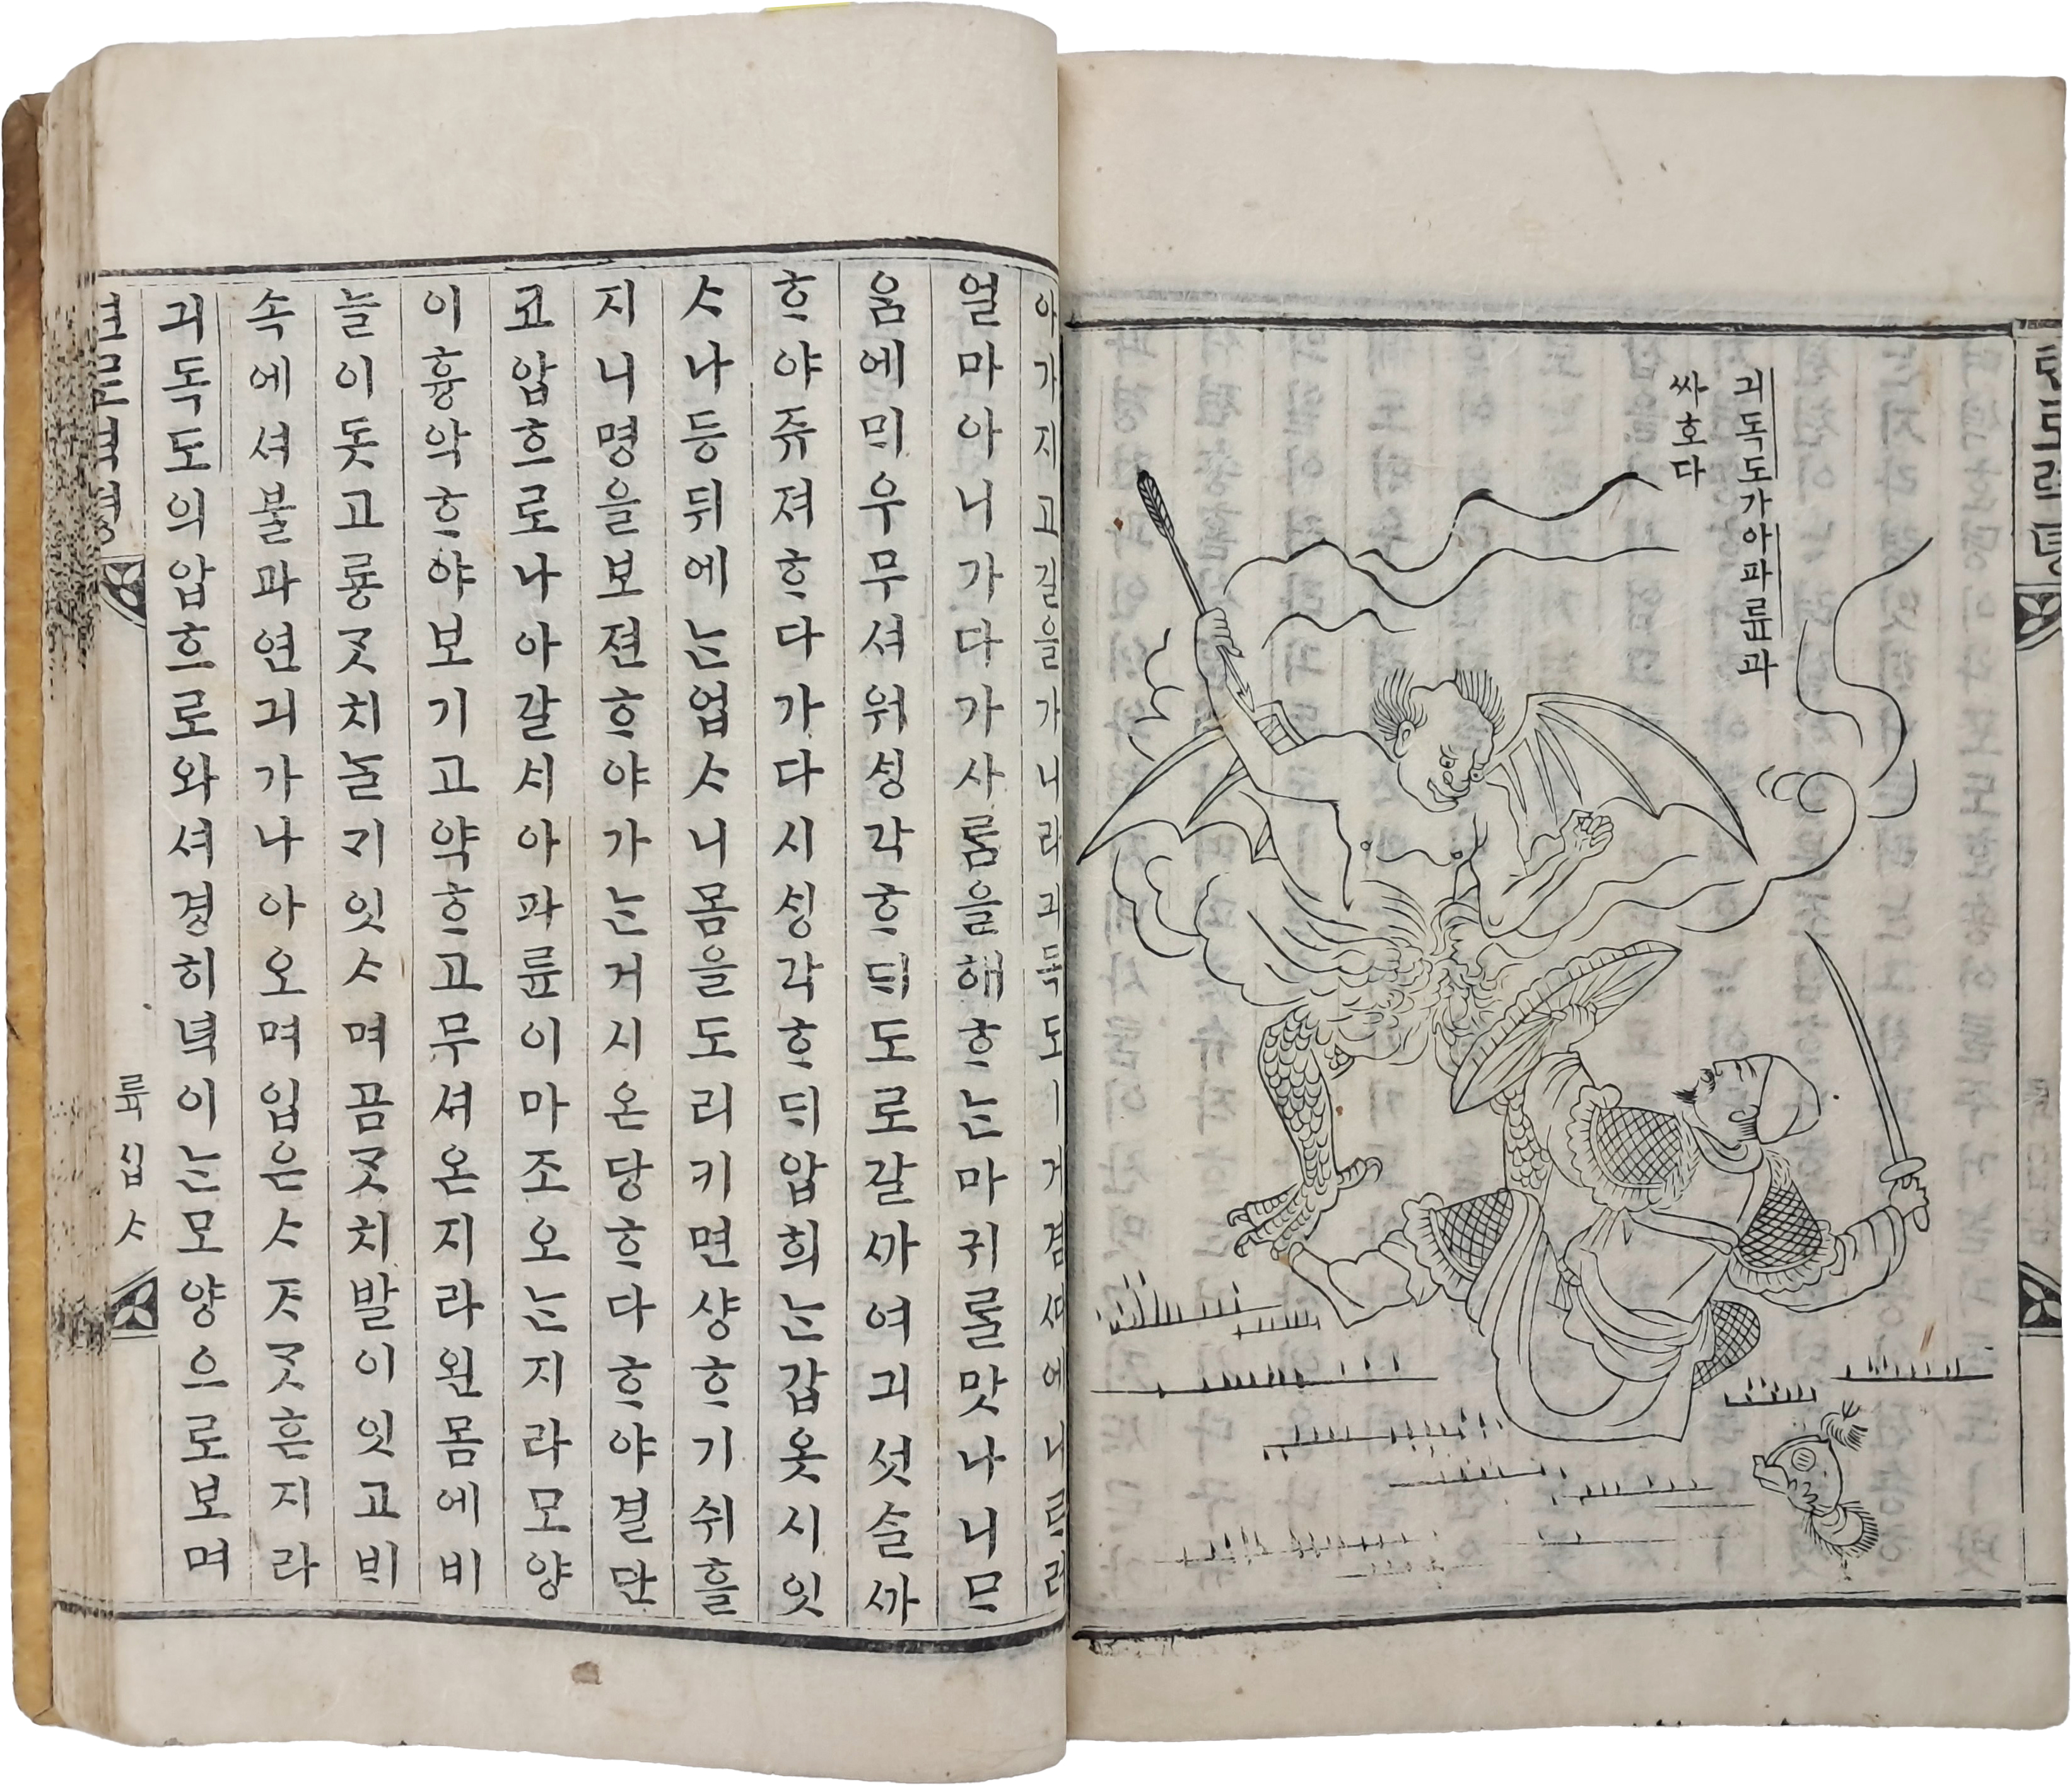 긔독도가아파륜과
싸호다
텬로력뎡
아가지고길을가니라긔독도ㅣ거겸셔에ᄂᆞ려
얼마아니가다가사ᄅᆞᆷ을해ᄒᆞᄂᆞᆫ마귀ᄅᆞᆯ맛나니ᄆᆞ
음에ᄆᆡ우무셔워ᄉᆡᆼ각ᄒᆞᄃᆡ도로갈까여긔섯슬까
ᄒᆞ야쥬져ᄒᆞ다가다시ᄉᆡᆼ각ᄒᆞᄃᆡ압희ᄂᆞᆫ갑옷시잇
ᄉᆞ나등뒤에ᄂᆞᆫ업ᄉᆞ니몸을도리키면샹ᄒᆞ기쉬흘
지니명을보젼ᄒᆞ야가ᄂᆞᆫ거시온당ᄒᆞ다ᄒᆞ야결단
코압흐로나아갈ᄉᆡ아파륜이마조오ᄂᆞᆫ지라모양
이흉악ᄒᆞ야보기고약ᄒᆞ고무셔온지라왼몸에비
늘이돗고룡ᄀᆞᆺ치ᄂᆞᆯ기잇ᄉᆞ며곰ᄀᆞᆺ치발이잇고ᄇᆡ
속에셔불과연긔가나아오며입은ᄉᆞᄌᆞᄀᆞᆺᄒᆞᆫ지라
긔독도의압흐로와셔경히넉이ᄂᆞᆫ모양으로보며
텬로력뎡
륙십ᄉᆞ